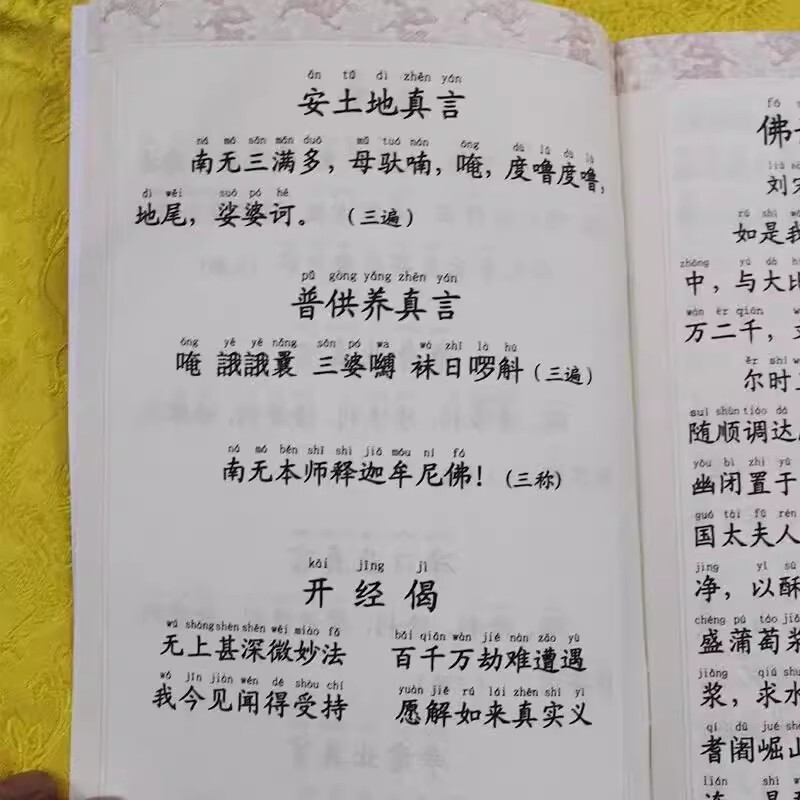 ān tǔ dì zhēn yán
安土地真言
ná mó sān mǎn duō mǔ tuó nán ōng dù lū dù lū
南无三满多，母驮喃，唵，度噜度噜，
dì wěi suō pó hē
地尾，娑婆诃。（三遍）
pǔ gòng yǎng zhēn yán
普供养真言
ōng yé yé nǎng sān pó wa wà zhī là hū
唵 誐誐曩 三婆嚩 袜日啰斛（三遍）
ná mó běn shī shì jiā móu ní fó
南无本师释迦牟尼佛！（三称）
kāi jīng jì
开经偈
wú shàng shèn shēn wēi miào fǎ bǎi qiān wàn jié nán zāo yù
无上甚深微妙法 百千万劫难遭遇
wǒ jīn jiàn wén dé shòu chí yuàn jiě rú lái zhēn shí yì
我今见闻得受持 愿解如来真实义
fó
佛
刘宋
rú shì wǒ
如是我
zhōng yú dà bǐ
中，与大比
wàn èr qiān
万二千，
ěr shí
尔时
suí shùn tiáo dá
随顺调达
yōu bì zhì yú
幽闭置于
guó tài fū rén
国太夫人
jìng yǐ sū
净，以酥
chéng pú táo jiāng
盛蒲萄浆
jiāng qiú shuǐ
浆，求水
qí dū jué shān
耆阇崛山
lián shì